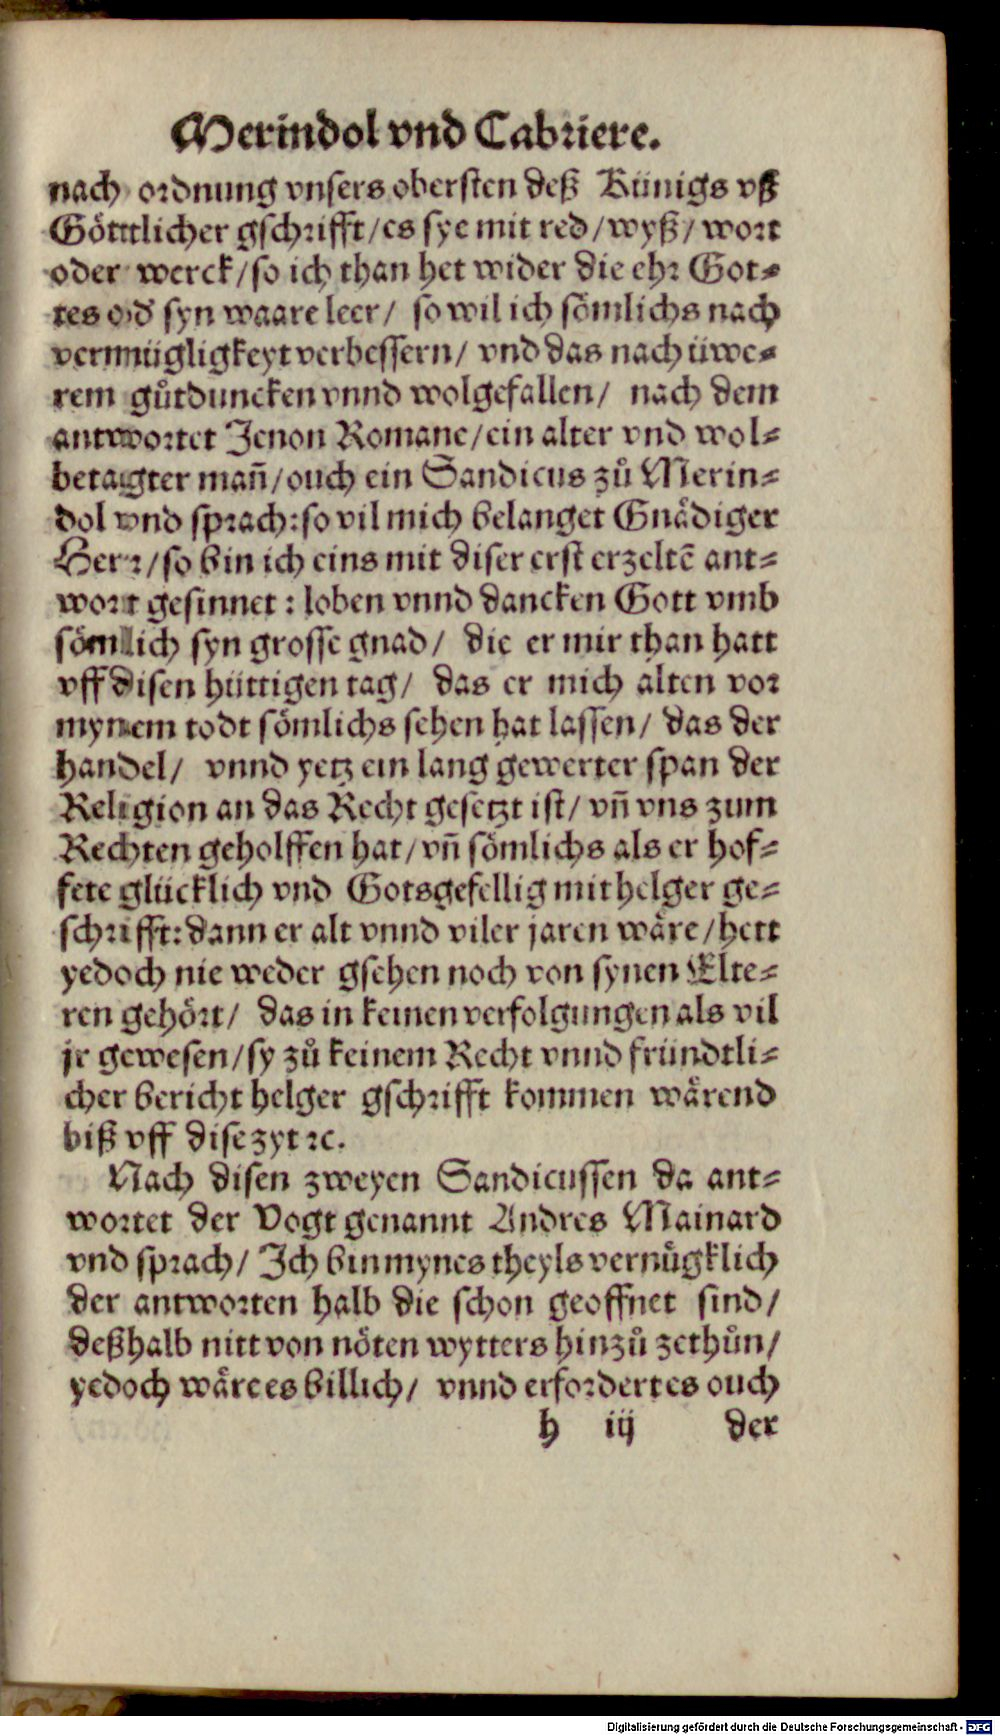 Merindol vnd Cabriere.
nach ordnung vnsers obersten deß Künigs vß
Götttlicher gschrifft/es sye mit red/wyß/wort
oder werck/so ich than het wider die ehr Got⸗
tes od̕ syn waare leer/ so wil ich soͤmlichs nach
vermügligkeyt verbessern/ vnd das nach üwe⸗
rem guͦtduncken vnnd wolgefallen/ nach dem
antwortet Jenon Romane/ein alter vnd wol⸗
betagter man̄/ouch ein Sandicus zuͦ Merin⸗
dol vnd sprach:so vil mich belanget Gnaͤdiger
Herr/so bin ich eins mit diser erst erzeltē ant⸗
wort gesinnet: loben vnnd dancken Gott vmb
soͤmlich syn grosse gnad/ die er mir than hatt
vff disen hüttigen tag/ das er mich alten vor
mynem todt soͤmlichs sehen hat lassen/ das der
handel/ vnnd yetz ein lang gewerter span der
Religion an das Recht gesetzt ist/ vn̄ vns zum
Rechten geholffen hat/vn̄ soͤmlichs als er hof⸗
fete glücklich vnd Gotsgefellig mit helger ge⸗
schrifft:dann er alt vnnd viler jaren waͤre/hett
yedoch nie weder gsehen noch von synen Elte⸗
ren gehoͤrt/ das in keinen verfolgungen als vil
jr gewesen/sy zuͦ keinem Recht vnnd fründtli⸗
cher bericht helger gschrifft kommen waͤrend
biß vff dise zyt ꝛc.
Nach disen zweyen Sandicussen da ant⸗
wortet der Vogt genannt Andres Mainard
vnd sprach/ Ich bin mynes theyls vernuͤgklich
der antworten halb die schon geoffnet sind/
deßhalb nitt von noͤten wytters hinzuͦ zethuͦn/
yedoch waͤre es billich/ vnnd erfordert es ouch
h iij der
Digitalisierung gefördert durch die Deutsche Forschungsgemeinschaft - DFG